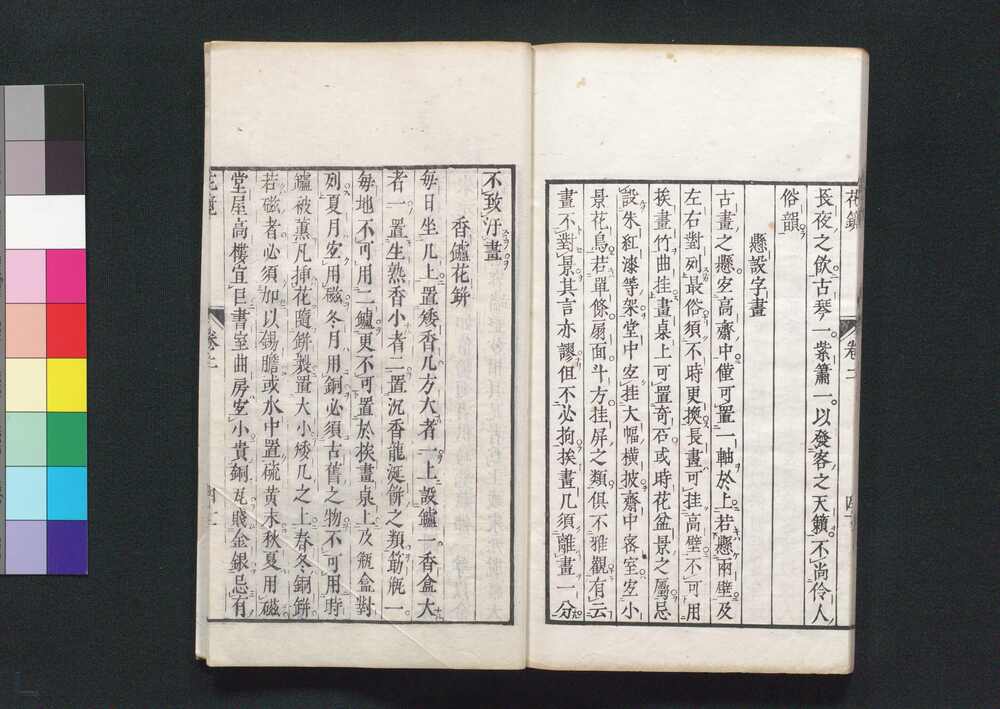 花鏡 卷二
長夜之飲古琴一紫簫一以發客之天籟不尚伶人
俗韻
懸設字畫
古畫之懸宜高齋中僅可置一軸於上若懸兩壁及
左右對列最俗須不時更換長畫可挂高壁不可用
挨畫竹曲挂畫桌上可置奇石或時花盆景之屬忌
設朱紅漆等架堂中宜挂大幅橫披齋中密室宜小
景花鳥若單條扇面斗方挂屏之類俱不雅觀有云
畫不對景其言亦謬但不必拘挨畫几須離畫一分
不致汙畫
香鑪花缾
每日坐几上置矮香几方大者一上設鑪一香盒大
者一置生熟香小者二置沉香龍涎餅之類筯瓶一
每地不可用二鑪更不可置於挨畫桌上及瓶盒對
列夏月宜用磁冬月用銅必須古舊之物不可用時
鑪被熏凡插花隨缾製置大小矮几之上春冬銅缾
若磁者必須加以錫膽或水中置硫黃末秋夏用磁
堂屋高樓宜巨書室曲房宜小貴銅瓦賤金銀忌有
花鏡 卷二 四二